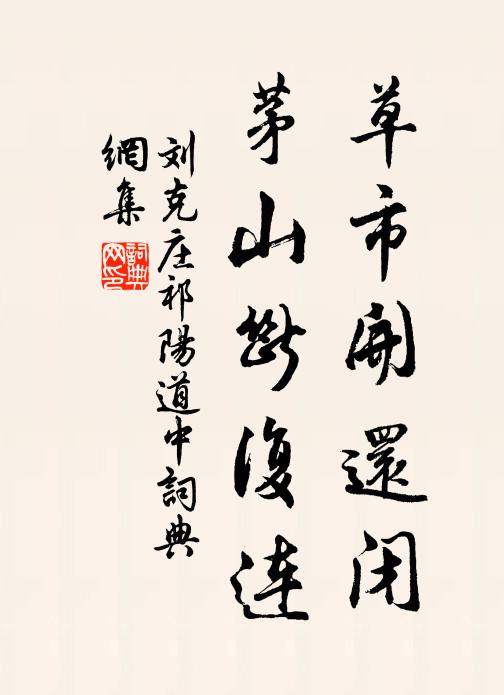 草市開還閉
茅山斷復連
刘克庄祁陽道中詞典
網集
詞典
网印